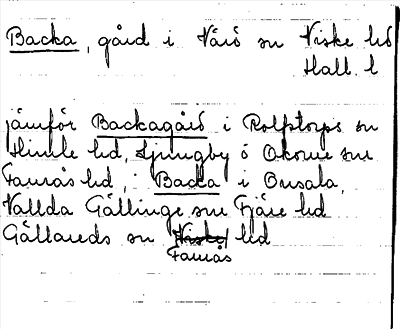 Backa, gård i Värö sn Viske hd
Hall. l
jämför Backagård i Rolfstorps sn
Himle hd, Ljungby o Okome snr
Faurås hd, Backa i Onsala,
Vallda Gällinge snr Fjäre hd
Gällareds sn Viske hd
Faurås